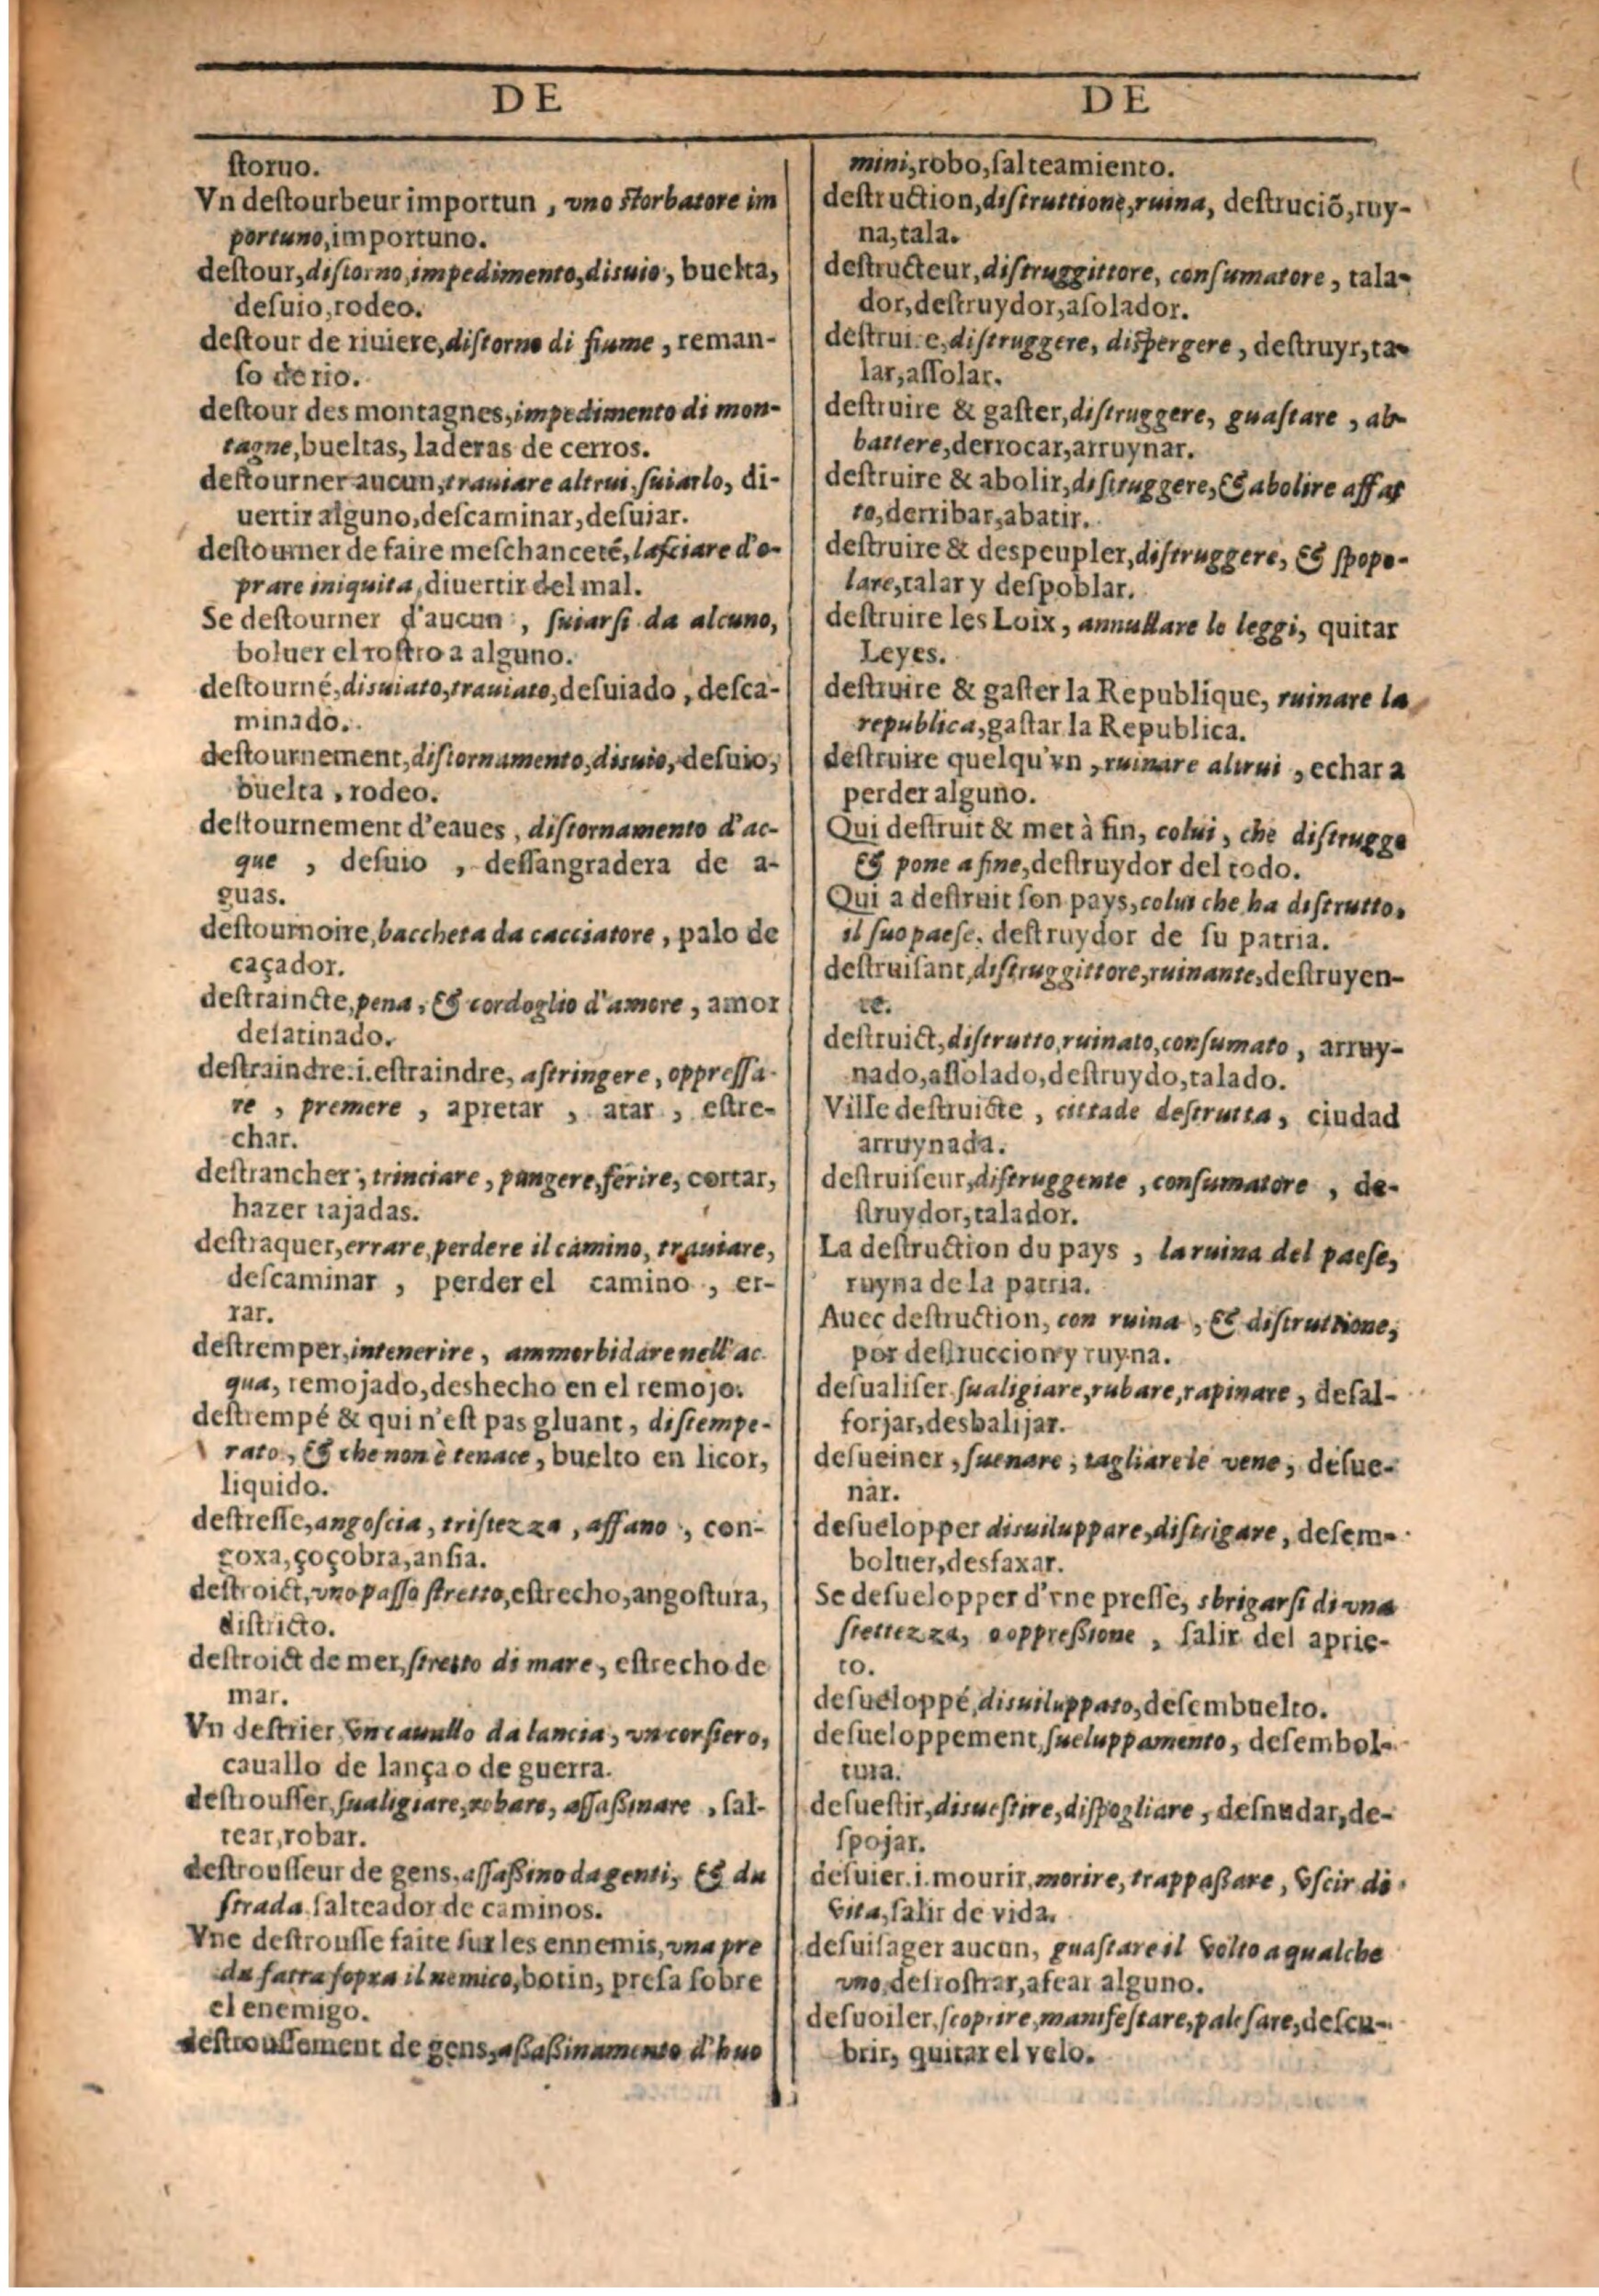 DE
ſtoruo.
Vn deſtourbeur importun, vno ſtorbatore im
portuno, importuno.
deſtour, diſtorno, impedimento, diſuio, buelta,
deſuio, rodeo.
deſtour de riuiere, diſtorno di fiume, reman-
ſo de rio.
deſtour des montagnes, impedimento di mon-
tagne, bueltas, laderas de cerros.
deſtourner aucun, trauiare altrui, ſuiarlo, di-
uertir alguno, deſcaminar, deſuiar.
deſtourner de faire meſchanceté, laſciare d'o-
prare iniquita, diuertir del mal.
Se deſtourner d'aucun, ſuiarſi da alcuno,
boluer el roſtro a alguno.
deſtourné, diſuiato, trauiato, deſuiado, deſca-
minado.
deſtournement, diſtornamento, diſuio, deſuio,
buelta, rodeo.
deſtournement d'eaues, diſtornamento d'ac-
que, deſuio, deſſangradera de a-
guas.
deſtournoire, baccheta da cacciatore, palo de
caçador.
deſtraincte, pena, & cordoglio d'amore, amor
deſatinado.
deſtraindre. i. eſtraindre, aſtringere, oppreſſa-
re, premere, apretar, atar, eſtre-
char.
deſtrancher, trinciare, pungere, ferire, cortar,
hazer tajadas.
deſtraquer, errare, perdere il camino, trauiare,
deſcaminar, perder el camino, er-
rar.
deſtremper, intenerire, ammorbidare nell'ac
qua, remojado, deshecho en el remojo.
deſtrempé & qui n'eſt pas gluant, diſtempe-
rato, & che non è tenace, buelto en licor,
liquido.
deſtreſſe, angoſcia, triſtezza, affano, con-
goxa, çoçobra, anſia.
deſtroict, vno paſſo ſtretto, eſtrecho, angoſtura,
diſtricto.
deſtroict de mer, ſtretto di mare, eſtrecho de
mar.
Vn deſtrier, vn cauallo da lancia, vn corſiero,
cauallo de lança o de guerra.
deſtrouſſer, ſualigiare, robare, aſſaßinare, ſal-
tear, robar.
deſtrouſſeur de gens, aſſaßino da genti, & da
ſtrada, ſalteador de caminos.
Vne deſtrouſſe faite ſur les ennemis, vna pre
da fatta ſopra il nemico, botin, preſa ſobre
el enemigo.
deſtrouſſement de gens, aßaßinamento d'huo
DE
mini, robo, ſalteamiento.
deſtruction, diſtruttione, ruina, deſtruciõ, ruy-
na, tala.
deſtructeur, diſtruggittore, conſumatore, tala-
dor, deſtruydor, aſolador.
deſtrui.e, diſtruggere, diſpergere, deſtruyr, ta-
lar, aſſolar.
deſtruire & gaſter, diſtruggere, guaſtare, ab-
battere, derrocar, arruynar.
deſtruire & abolir, diſtruggere, & abolire affat
to, derribar, abatir.
deſtruire & deſpeupler, diſtruggere, & ſpopo-
lare, talar y deſpoblar.
deſtruire les Loix, annullare le leggi, quitar
Leyes.
deſtruire & gaſter la Republique, ruinare la
republica, gaſtar la Republica.
deſtruire quelqu'vn, ruinare altrui, echar a
perder alguno.
Qui deſtruit & met à fin, colui, che diſtrugge
& pone a fine, deſtruydor del todo.
Qui a deſtruit ſon pays, colui che ha diſtrutto,
il ſuo paeſe, deſtruydor de ſu patria.
deſtruiſant, diſtruggittore, ruinante, deſtruyen-
te.
deſtruict, diſtrutto, ruinato, conſumato, arruy-
nado, aſſolado, deſtruydo, talado.
Ville deſtruicte, cittade deſtrutta, ciudad
arruynada.
deſtruiſeur, diſtruggente, conſumatore, de-
ſtruydor, talador.
La deſtruction du pays, la ruina del paeſe,
ruyna de la patria.
Auec deſtruction, con ruina, & diſtruttione,
por deſtruccion y ruyna.
deſualiſer, ſualigiare, rubare, rapinare, deſal-
forjar, desbalijar.
deſueiner, ſuenare, tagliare le vene, deſue-
nar.
deſuelopper, diſuiluppare, diſtrigare, deſem-
boluer, desfaxar.
Se deſuelopper d'vne preſſe, sbrigarſi di vna
ſtettezza, o oppreßione, ſalir del aprie-
to.
deſueloppé, diſuiluppato, deſembuelto.
deſueloppement, ſueluppamento, deſembol-
tura.
deſueſtir, diſueſtire, diſpogliare, deſnudar, de-
ſpojar.
deſuier. i. mourir, morire, trappaßare, vſcir di
vita, ſalir de vida.
deſuiſager aucun, guaſtare il volto a qualche
vno, deſroſtrar, afear alguno.
deſuoiler, ſcoprire, manifeſtare, paleſare, deſcu-
brir, quitar el velo.